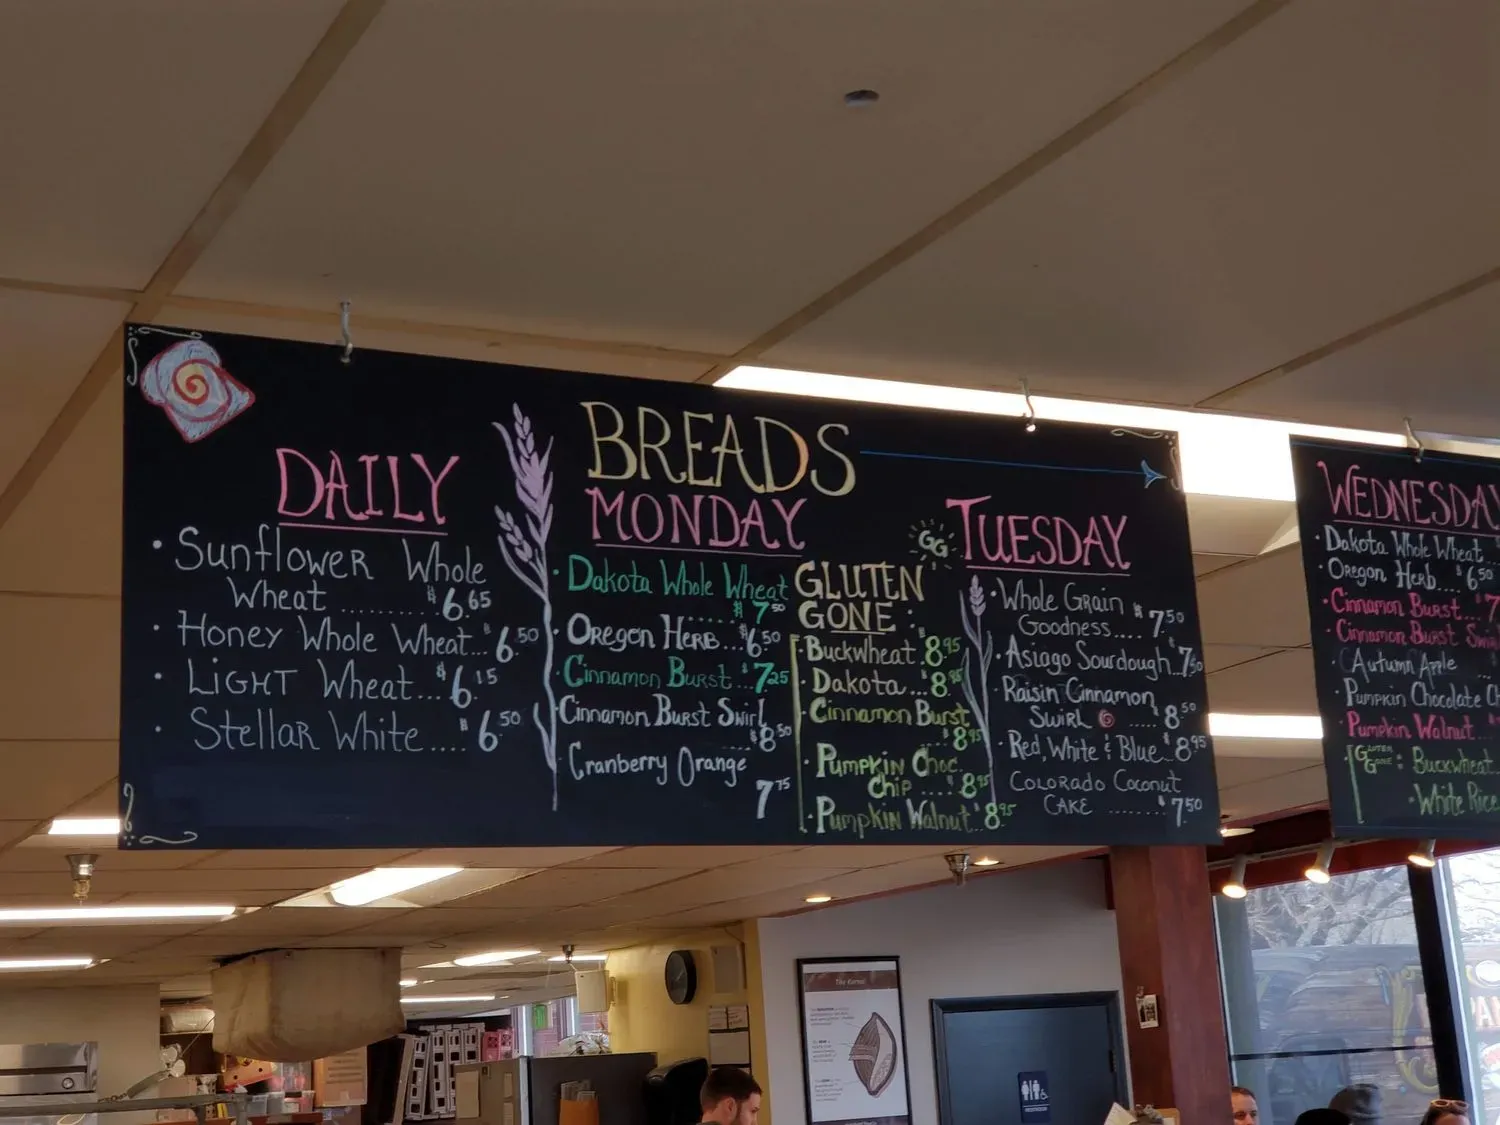 BREADS
DAILY
• Sunflower Whole
Wheat ........ $6.65
• Honey Whole Wheat... $6.50
• Light Wheat.... $6.15
• Stellar White.... $6.50
MONDAY
• Dakota Whole Wheat
...... $7.50
• Oregon Herb...$6.50
• Cinnamon Burst...7.25
• Cinnamon Burst Swirl
.... $8.50
• Cranberry Orange
7.75
GG
GLUTEN
GONE:
• Buckwheat.$8.95
• Dakota...8.95
• Cinnamon Burst
... $8.95
• Pumpkin Choc.
Chip .... $8.95
• Pumpkin Walnut.$8.95
TUESDAY
• Whole Grain
Goodness.... $7.50
• Asiago Sourdough..$7.50
• Raisin Cinnamon
Swirl ..... 8.50
• Red, White & Blue..$8.95
Colorado Coconut
Cake ........ $7.50
WEDNESDAY
• Dakota Whole Wheat...
• Oregon Herb....$6.50
• Cinnamon Burst...$7
• Cinnamon Burst
• Autumn Apple
• Pumpkin Chocolate
• Pumpkin Walnut...
• Gluten
Gone: • Buckwheat..
• White Rice
The Kernel
RESTROOM